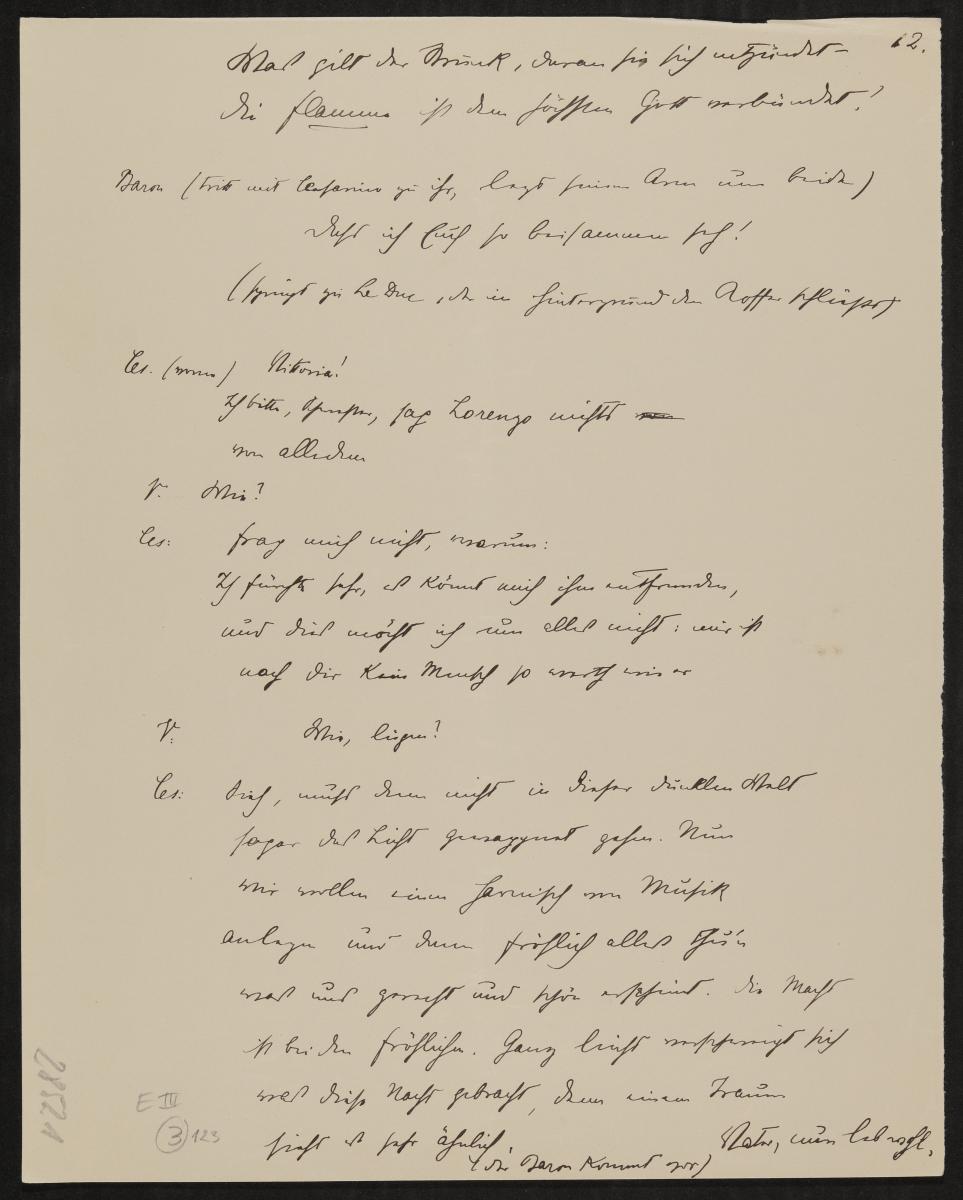 12.
Was gilt der Prunk, daran sie sich entzündet –
die Flamme ist dem höchsten Gott verbündet!
Baron (tritt mit Cesarino zu ihr, legt seinen Arm um beide)
Dass ich Euch so beisammen seh!
(springt zu Le Duc, der im Hintergrund den Koffer schliesst)
Ces. (vorne) Vittoria!
Ich bitte, Schwester, sag Lorenzo nichts
von alledem
V. Wie?
Ces: frag mich nicht, warum:
Ich fürchte sehr, es könnt mich ihm entfremden,
und dies möcht ich um alles nicht: mir ist
nach dir kein Mensch so werth wie er
V: Wie, lügen?
Ces: Sieh, muss denn nicht in dieser dunklen Welt
sogar das Licht gewappnet gehen. Nun
wir wollen einen Harnisch von Musik
anlegen und dann fröhlich alles thu'n
was uns gerecht und schön erscheint. Die Macht
ist bei den Fröhlichen. Ganz leicht verschweigt sich
was diese Nacht gebracht, denn einem Traum
sieht es sehr ähnlich. Vater, nun leb wohl.
(der Baron kommt vor)
E III
3 123
28521